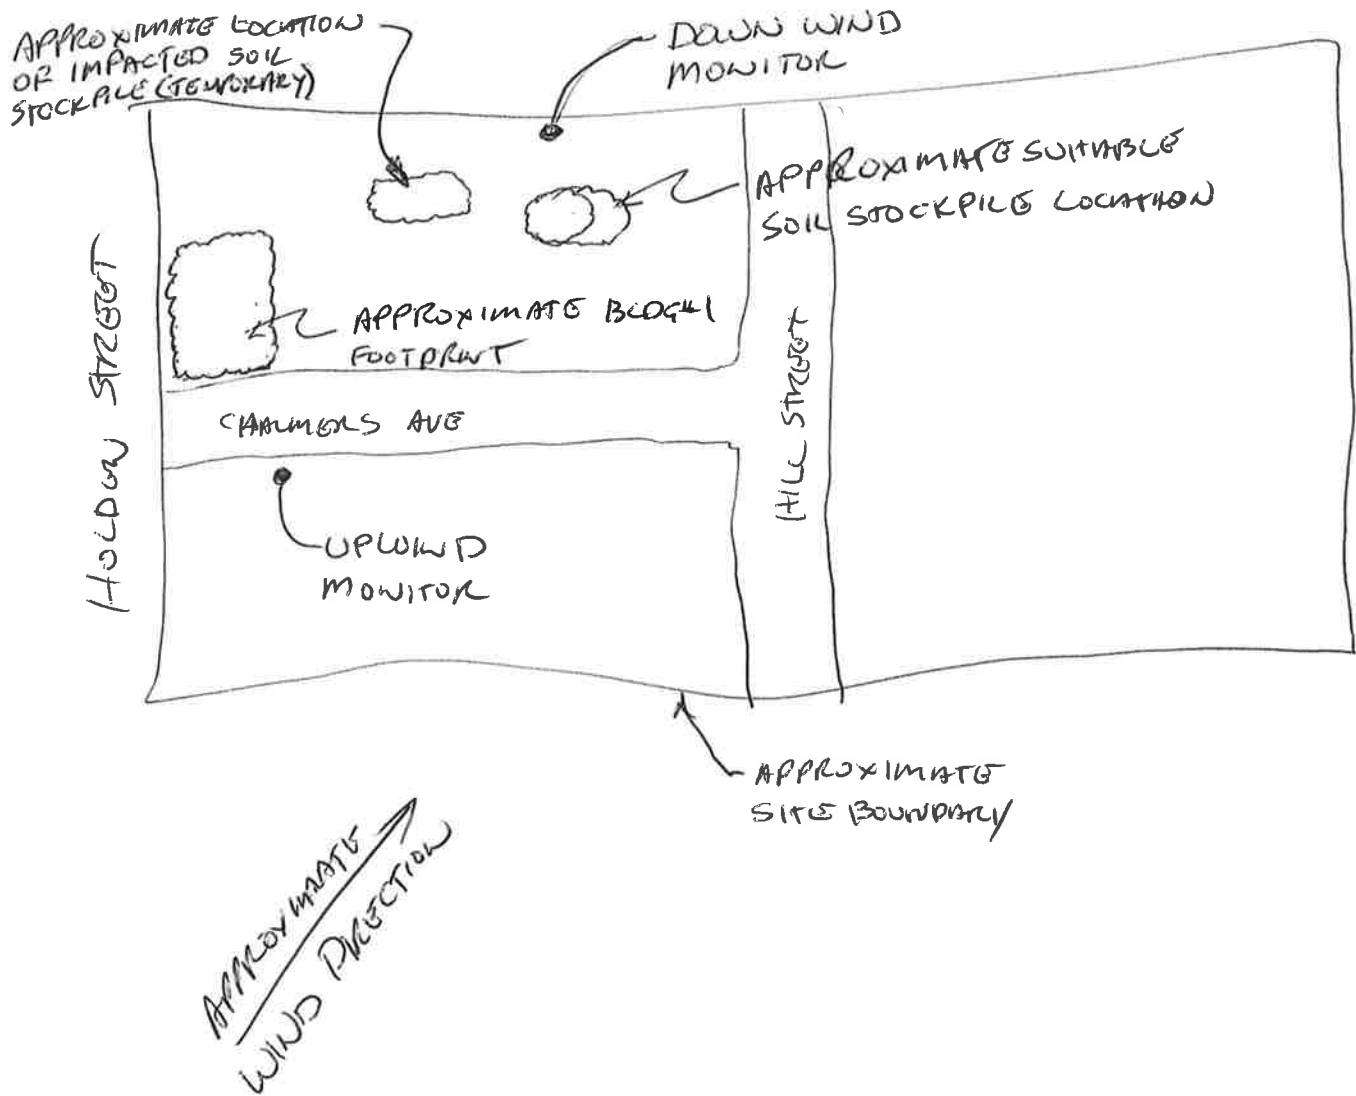 APPROXIMATE LOCATION
OF IMPACTED SOIL
STOCKPILE (TEMPORARY)
DOWN WIND
MONITOR
APPROXIMATE SUITABLE
SOIL STOCKPILE LOCATION
APPROXIMATE BLDG#1
FOOTPRINT
HOLDEN STREET
CHALMERS AVE
HILL STREET
UPWIND
MONITOR
APPROXIMATE
SITE BOUNDARY
APPROXIMATE
WIND DIRECTION